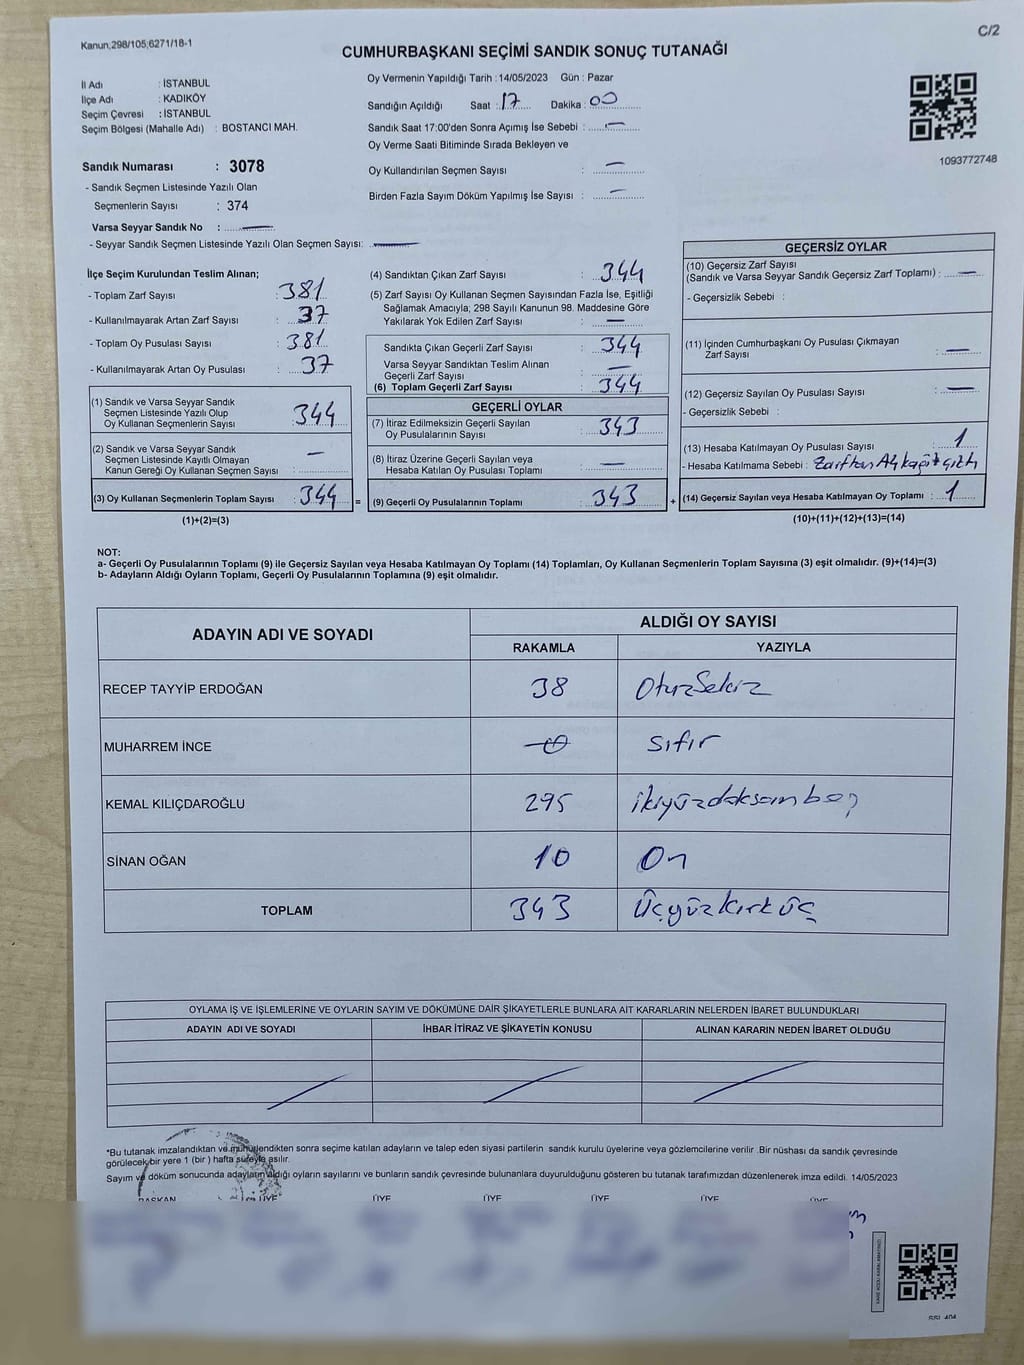 Kanun;298/105;6271/18-1
C/2
CUMHURBAŞKANI SEÇİMİ SANDIK SONUÇ TUTANAĞI
İl Adı : İSTANBUL
İlçe Adı : KADIKÖY
Seçim Çevresi : İSTANBUL
Seçim Bölgesi (Mahalle Adı) : BOSTANCI MAH.
Sandık Numarası : 3078
- Sandık Seçmen Listesinde Yazılı Olan
Seçmenlerin Sayısı : 374
Varsa Seyyar Sandık No : —
- Seyyar Sandık Seçmen Listesinde Yazılı Olan Seçmen Sayısı: —
Oy Vermenin Yapıldığı Tarih : 14/05/2023 Gün : Pazar
Sandığın Açıldığı Saat : 17 Dakika : 00
Sandık Saat 17:00'den Sonra Açımış İse Sebebi : —
Oy Verme Saati Bitiminde Sırada Bekleyen ve
Oy Kullandırılan Seçmen Sayısı : —
Birden Fazla Sayım Döküm Yapılmış İse Sayısı : —
1093772748
İlçe Seçim Kurulundan Teslim Alınan;
- Toplam Zarf Sayısı : 381
- Kullanılmayarak Artan Zarf Sayısı : 37
- Toplam Oy Pusulası Sayısı : 381
- Kullanılmayarak Artan Oy Pusulası : 37
(1) Sandık ve Varsa Seyyar Sandık
Seçmen Listesinde Yazılı Olup
Oy Kullanan Seçmenlerin Sayısı : 344
(2) Sandık ve Varsa Seyyar Sandık
Seçmen Listesinde Kayıtlı Olmayan
Kanun Gereği Oy Kullanan Seçmen Sayısı : —
(3) Oy Kullanan Seçmenlerin Toplam Sayısı : 344 =
(1)+(2)=(3)
(4) Sandıktan Çıkan Zarf Sayısı : 344
(5) Zarf Sayısı Oy Kullanan Seçmen Sayısından Fazla İse, Eşitliği
Sağlamak Amacıyla; 298 Sayılı Kanunun 98. Maddesine Göre
Yakılarak Yok Edilen Zarf Sayısı : —
Sandıkta Çıkan Geçerli Zarf Sayısı : 344
Varsa Seyyar Sandıktan Teslim Alınan
Geçerli Zarf Sayısı : —
(6) Toplam Geçerli Zarf Sayısı : 344
GEÇERLİ OYLAR
(7) İtiraz Edilmeksizin Geçerli Sayılan
Oy Pusulalarının Sayısı : 343
(8) İtiraz Üzerine Geçerli Sayılan veya
Hesaba Katılan Oy Pusulası Toplamı : —
(9) Geçerli Oy Pusulalarının Toplamı : 343 +
GEÇERSİZ OYLAR
(10) Geçersiz Zarf Sayısı
(Sandık ve Varsa Seyyar Sandık Geçersiz Zarf Toplamı) : —
- Geçersizlik Sebebi :
(11) İçinden Cumhurbaşkanı Oy Pusulası Çıkmayan
Zarf Sayısı : —
(12) Geçersiz Sayılan Oy Pusulası Sayısı : —
- Geçersizlik Sebebi :
(13) Hesaba Katılmayan Oy Pusulası Sayısı : 1
- Hesaba Katılmama Sebebi : Zarftan
(14) Geçersiz Sayılan veya Hesaba Katılmayan Oy Toplamı : 1
(10)+(11)+(12)+(13)=(14)
NOT:
a- Geçerli Oy Pusulalarının Toplamı (9) ile Geçersiz Sayılan veya Hesaba Katılmayan Oy Toplamı (14) Toplamları, Oy Kullanan Seçmenlerin Toplam Sayısına (3) eşit olmalıdır. (9)+(14)=(3)
b- Adayların Aldığı Oyların Toplamı, Geçerli Oy Pusulalarının Toplamına (9) eşit olmalıdır.
ADAYIN ADI VE SOYADI
ALDIĞI OY SAYISI
RAKAMLA YAZIYLA
RECEP TAYYİP ERDOĞAN 38 OtuzSekiz
MUHARREM İNCE 0 sıfır
KEMAL KILIÇDAROĞLU 295 ikiyüzdoksan beş
SİNAN OĞAN 10 On
TOPLAM 343 Üçyüzkırküç
OYLAMA İŞ VE İŞLEMLERİNE VE OYLARIN SAYIM VE DÖKÜMÜNE DAİR ŞİKAYETLERLE BUNLARA AİT KARARLARIN NELERDEN İBARET BULUNDUKLARI
ADAYIN ADI VE SOYADI İHBAR İTİRAZ VE ŞİKAYETİN KONUSU ALINAN KARARIN NEDEN İBARET OLDUĞU
*Bu tutanak imzalandıktan ve mühürlendikten sonra seçime katılan adayların ve talep eden siyasi partilerin sandık kurulu üyelerine veya gözlemcilerine verilir. Bir nüshası da sandık çevresinde
görülecek bir yere 1 (bir ) hafta süreyle asılır.
Sayım ve döküm sonucunda adayların aldığı oyların sayılarını ve bunların sandık çevresinde bulunanlara duyurulduğunu gösteren bu tutanak tarafımızdan düzenlenerek imza edildi. 14/05/2023
BAŞKAN ÜYE ÜYE ÜYE ÜYE ÜYE